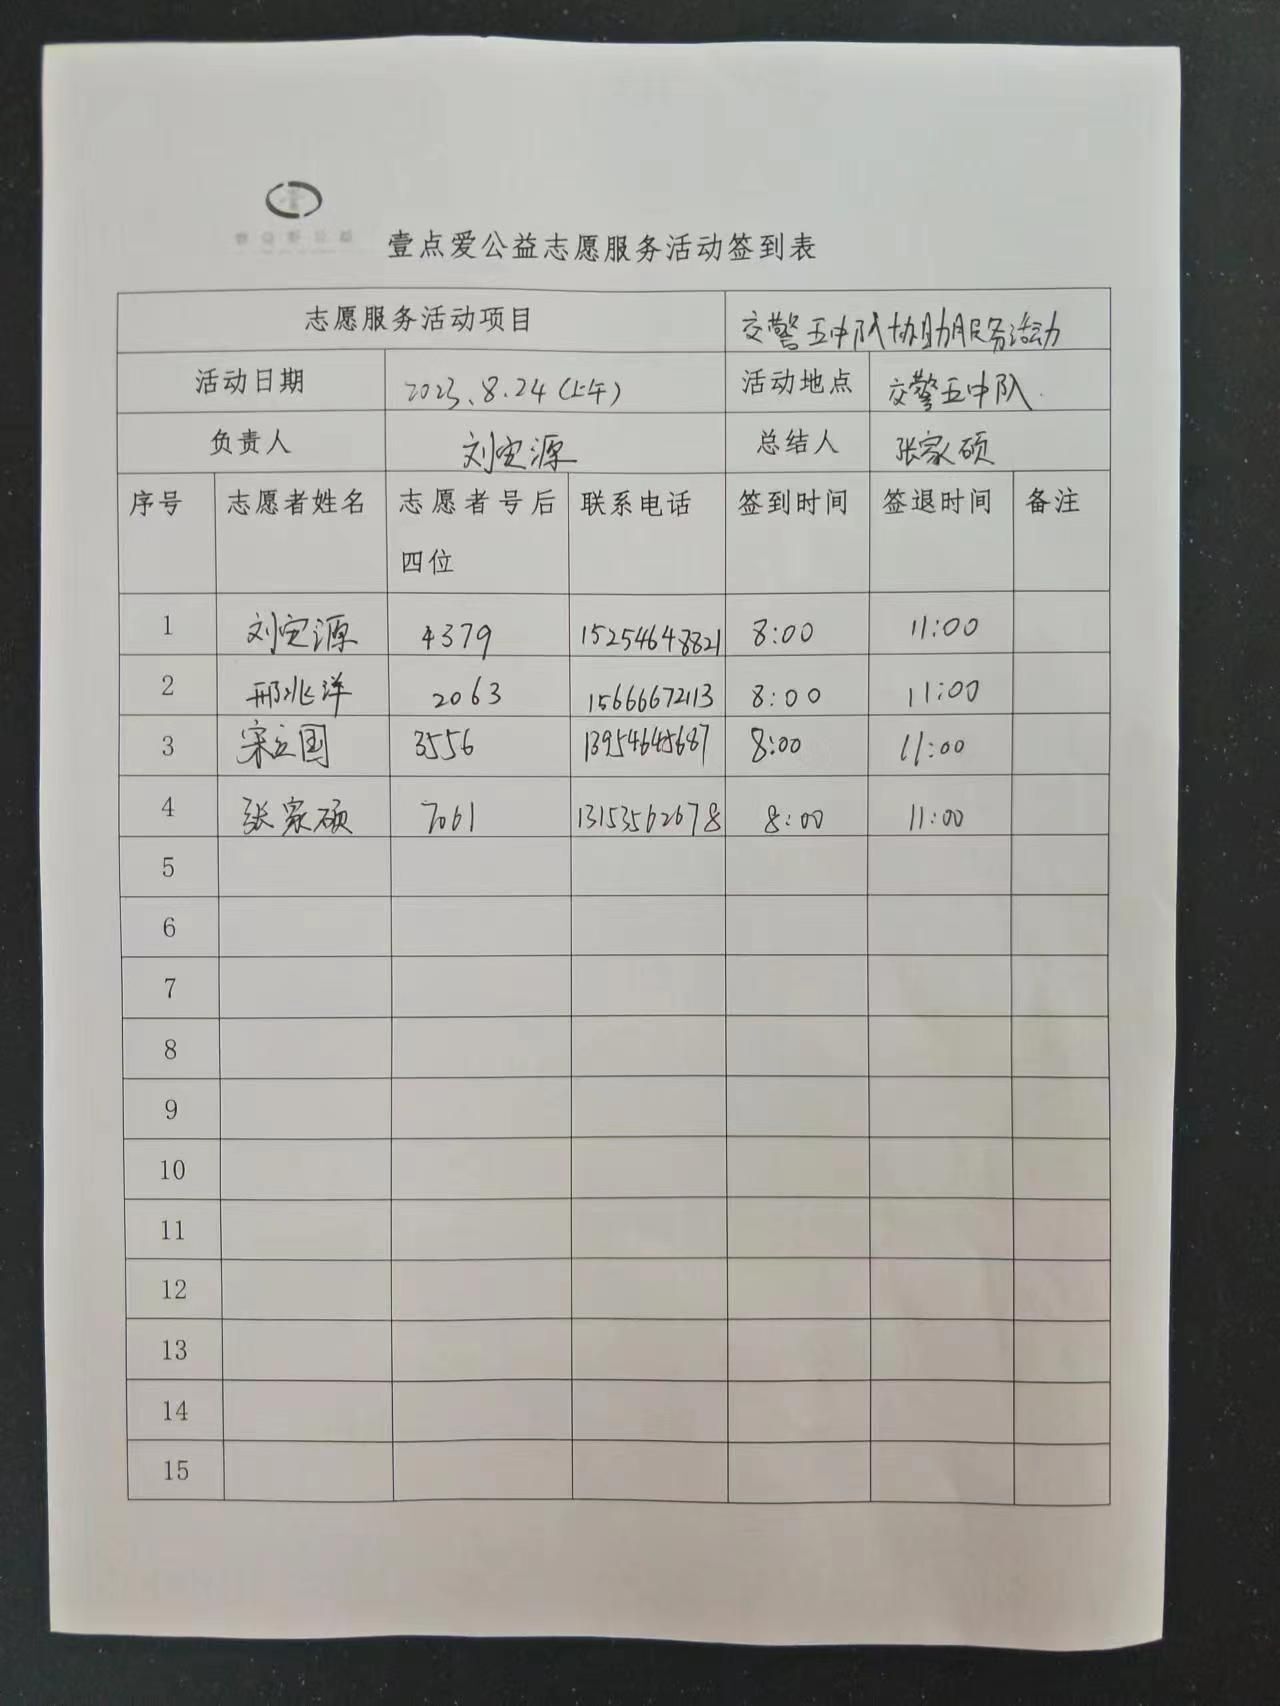 壹点爱公益志愿服务活动签到表
志愿服务活动项目 交警五中队协助服务活动
活动日期 2023.8.24(上午) 活动地点 交警五中队.
负责人 刘定源 总结人 张家硕
序号 志愿者姓名 志愿者号后四位 联系电话 签到时间 签退时间 备注
1 刘定源 4379 15254648821 8:00 11:00
2 邢兆洋 2063 15666672113 8:00 11:00
3 宋立国 3556 13954645687 8:00 11:00
4 张家硕 7061 13153562678 8:00 11:00
5
6
7
8
9
10
11
12
13
14
15